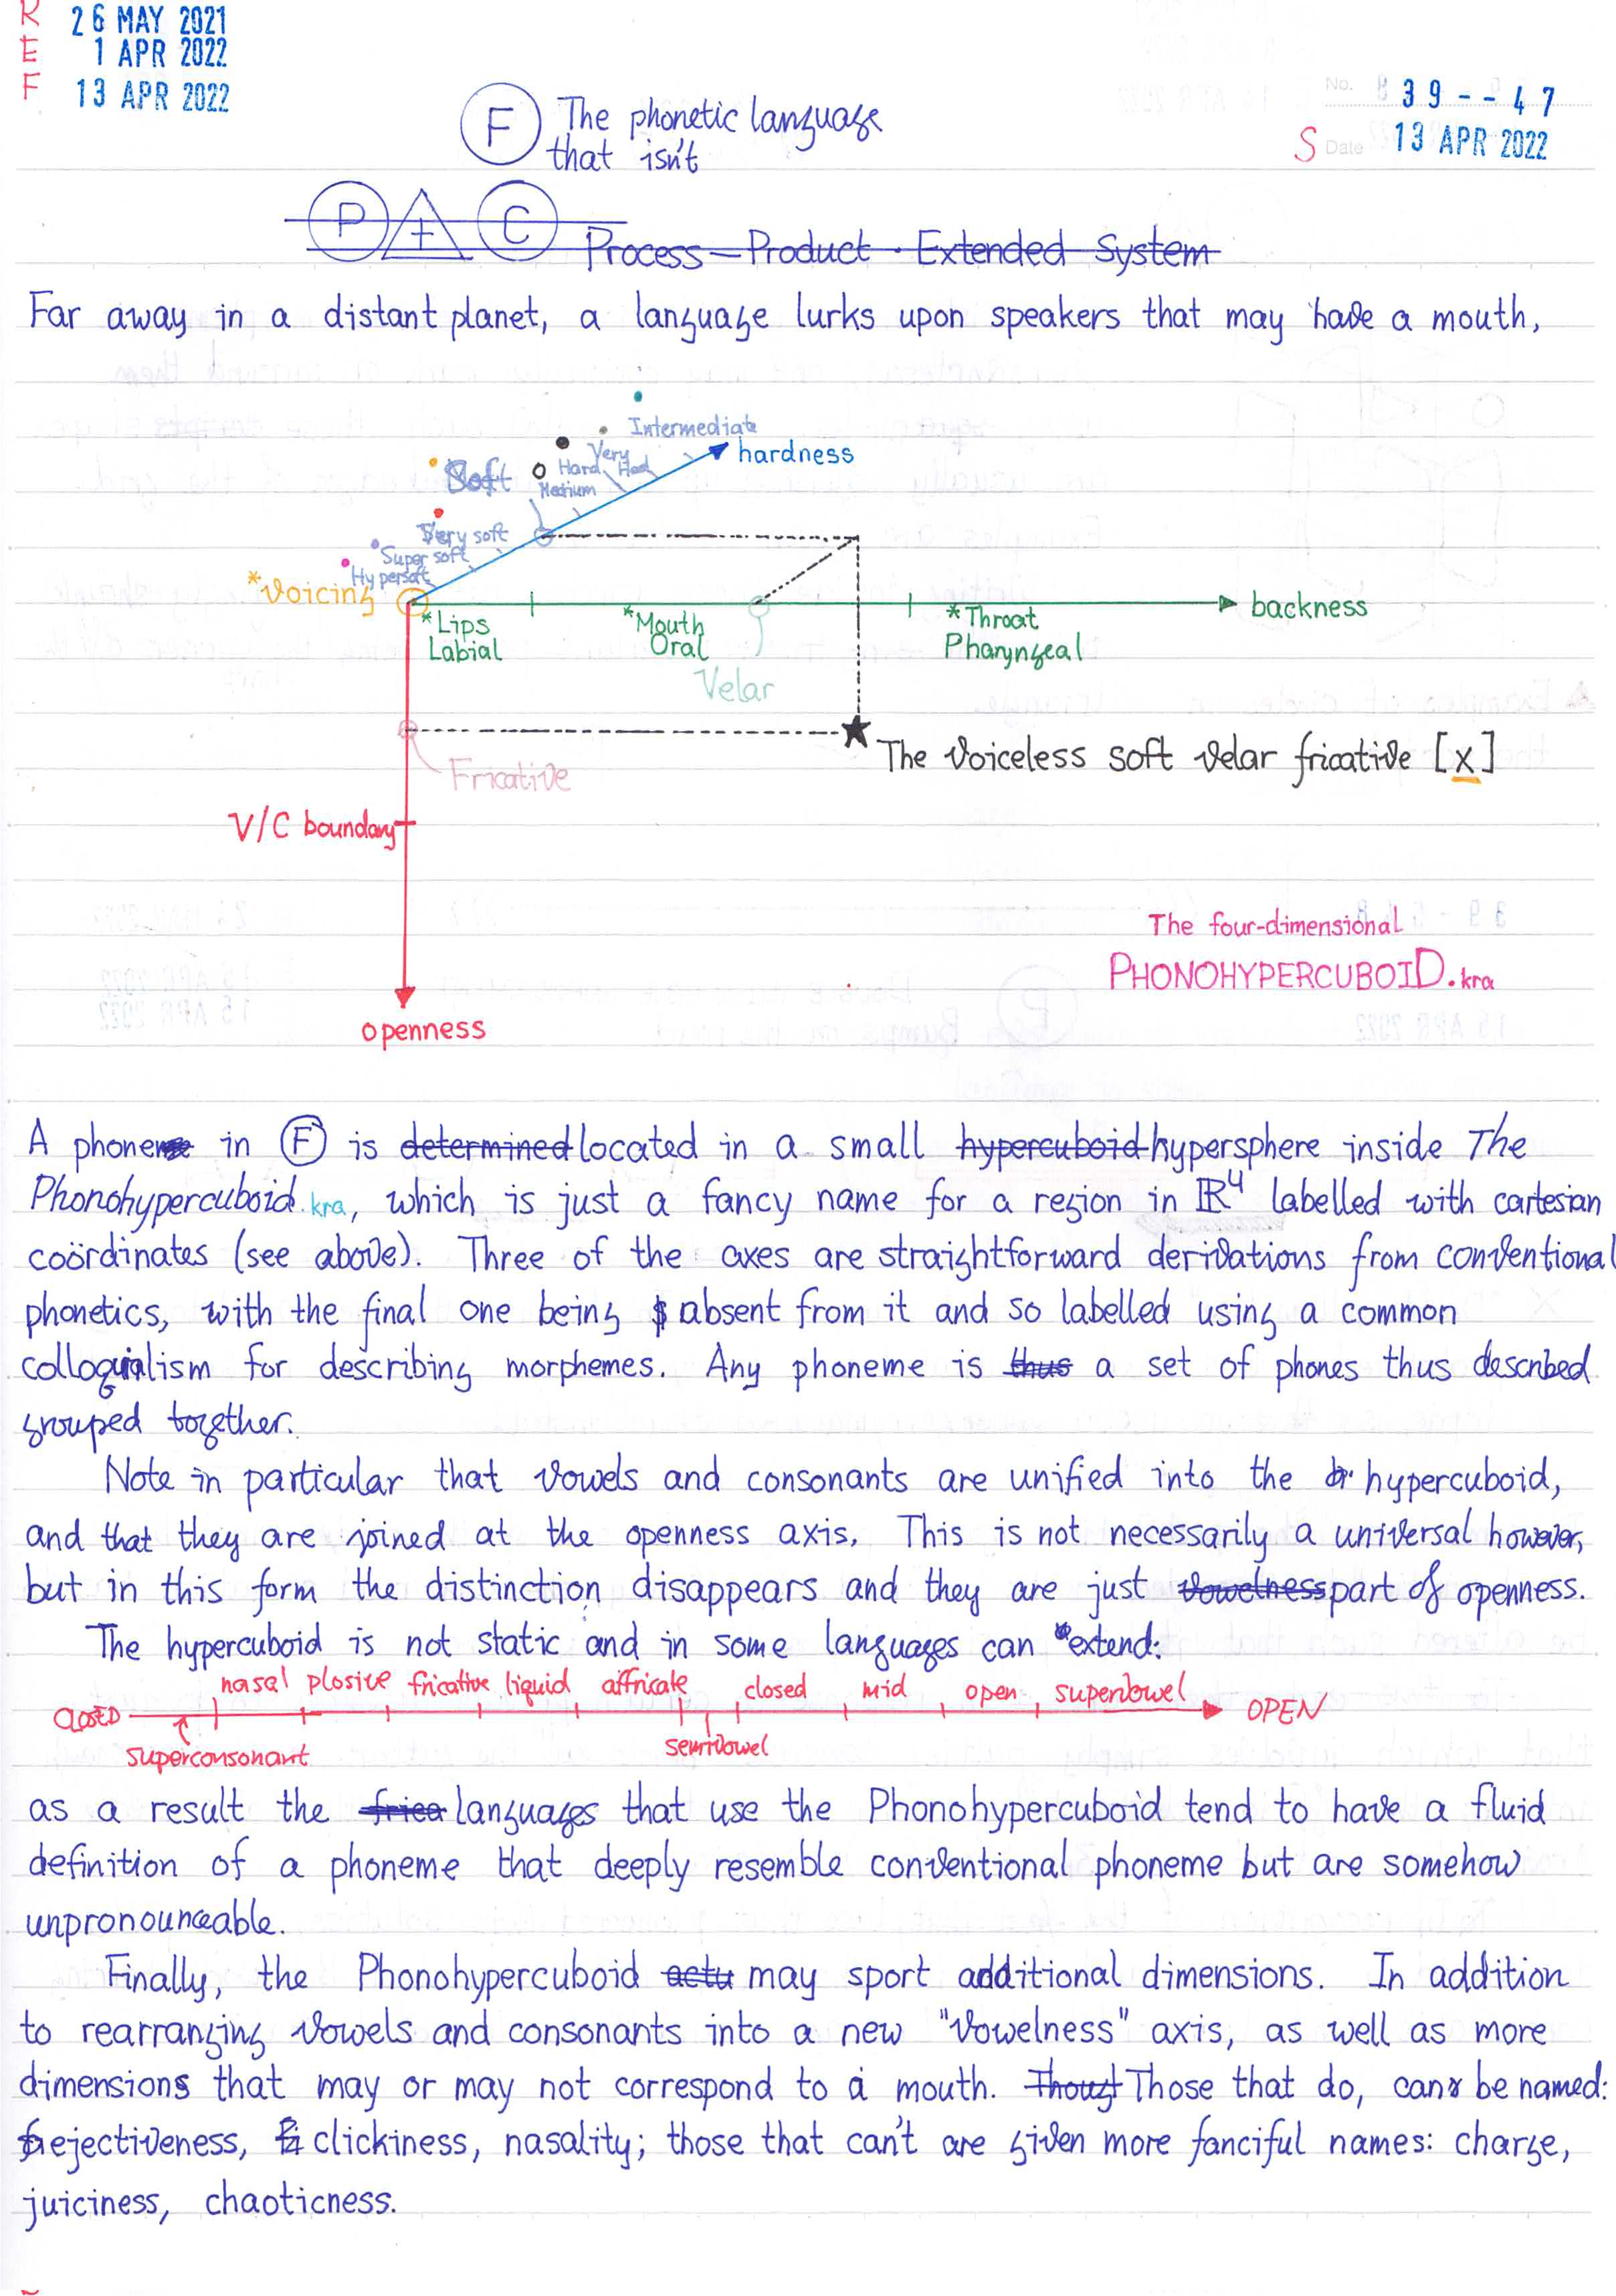 R 26 MAY 2021
E 1 APR 2022
F 13 APR 2022
No. 39--47
S Date 13 APR 2022
F The phonetic language
that isn't
P ± C Process–Product · Extended System
Far away in a distant planet, a language lurks upon speakers that may have a mouth,
Intermediate
hardness
Very Hard
Hard
Medium
Soft
Very soft
Super soft
Hypersoft
*Voicing
backness
*Lips
Labial
*Mouth
Oral
*Throat
Pharyngeal
Velar
The voiceless soft velar fricative [x]
Fricative
V/C boundary
The four-dimensional
PHONOHYPERCUBOID.kra
openness
A phoneme in F is determined located in a small hypercuboid hypersphere inside The
Phonohypercuboid.kra, which is just a fancy name for a region in ℝ⁴ labelled with cartesian
coördinates (see above). Three of the axes are straightforward derivations from conventional
phonetics, with the final one being absent from it and so labelled using a common
colloquialism for describing morphemes. Any phoneme is thus a set of phones thus described
grouped together.
Note in particular that vowels and consonants are unified into the hypercuboid,
and that they are joined at the openness axis. This is not necessarily a universal however,
but in this form the distinction disappears and they are just vowelness part of openness.
The hypercuboid is not static and in some languages can extend:
nasal plosive fricative liquid affricate closed mid open supervowel
CLOSED OPEN
superconsonant semivowel
as a result the frica languages that use the Phonohypercuboid tend to have a fluid
definition of a phoneme that deeply resemble conventional phoneme but are somehow
unpronounceable.
Finally, the Phonohypercuboid actu may sport additional dimensions. In addition
to rearranging vowels and consonants into a new "vowelness" axis, as well as more
dimensions that may or may not correspond to a mouth. Thougt Those that do, can be named:
ejectiveness, clickiness, nasality; those that can't are given more fanciful names: charge,
juiciness, chaoticness.